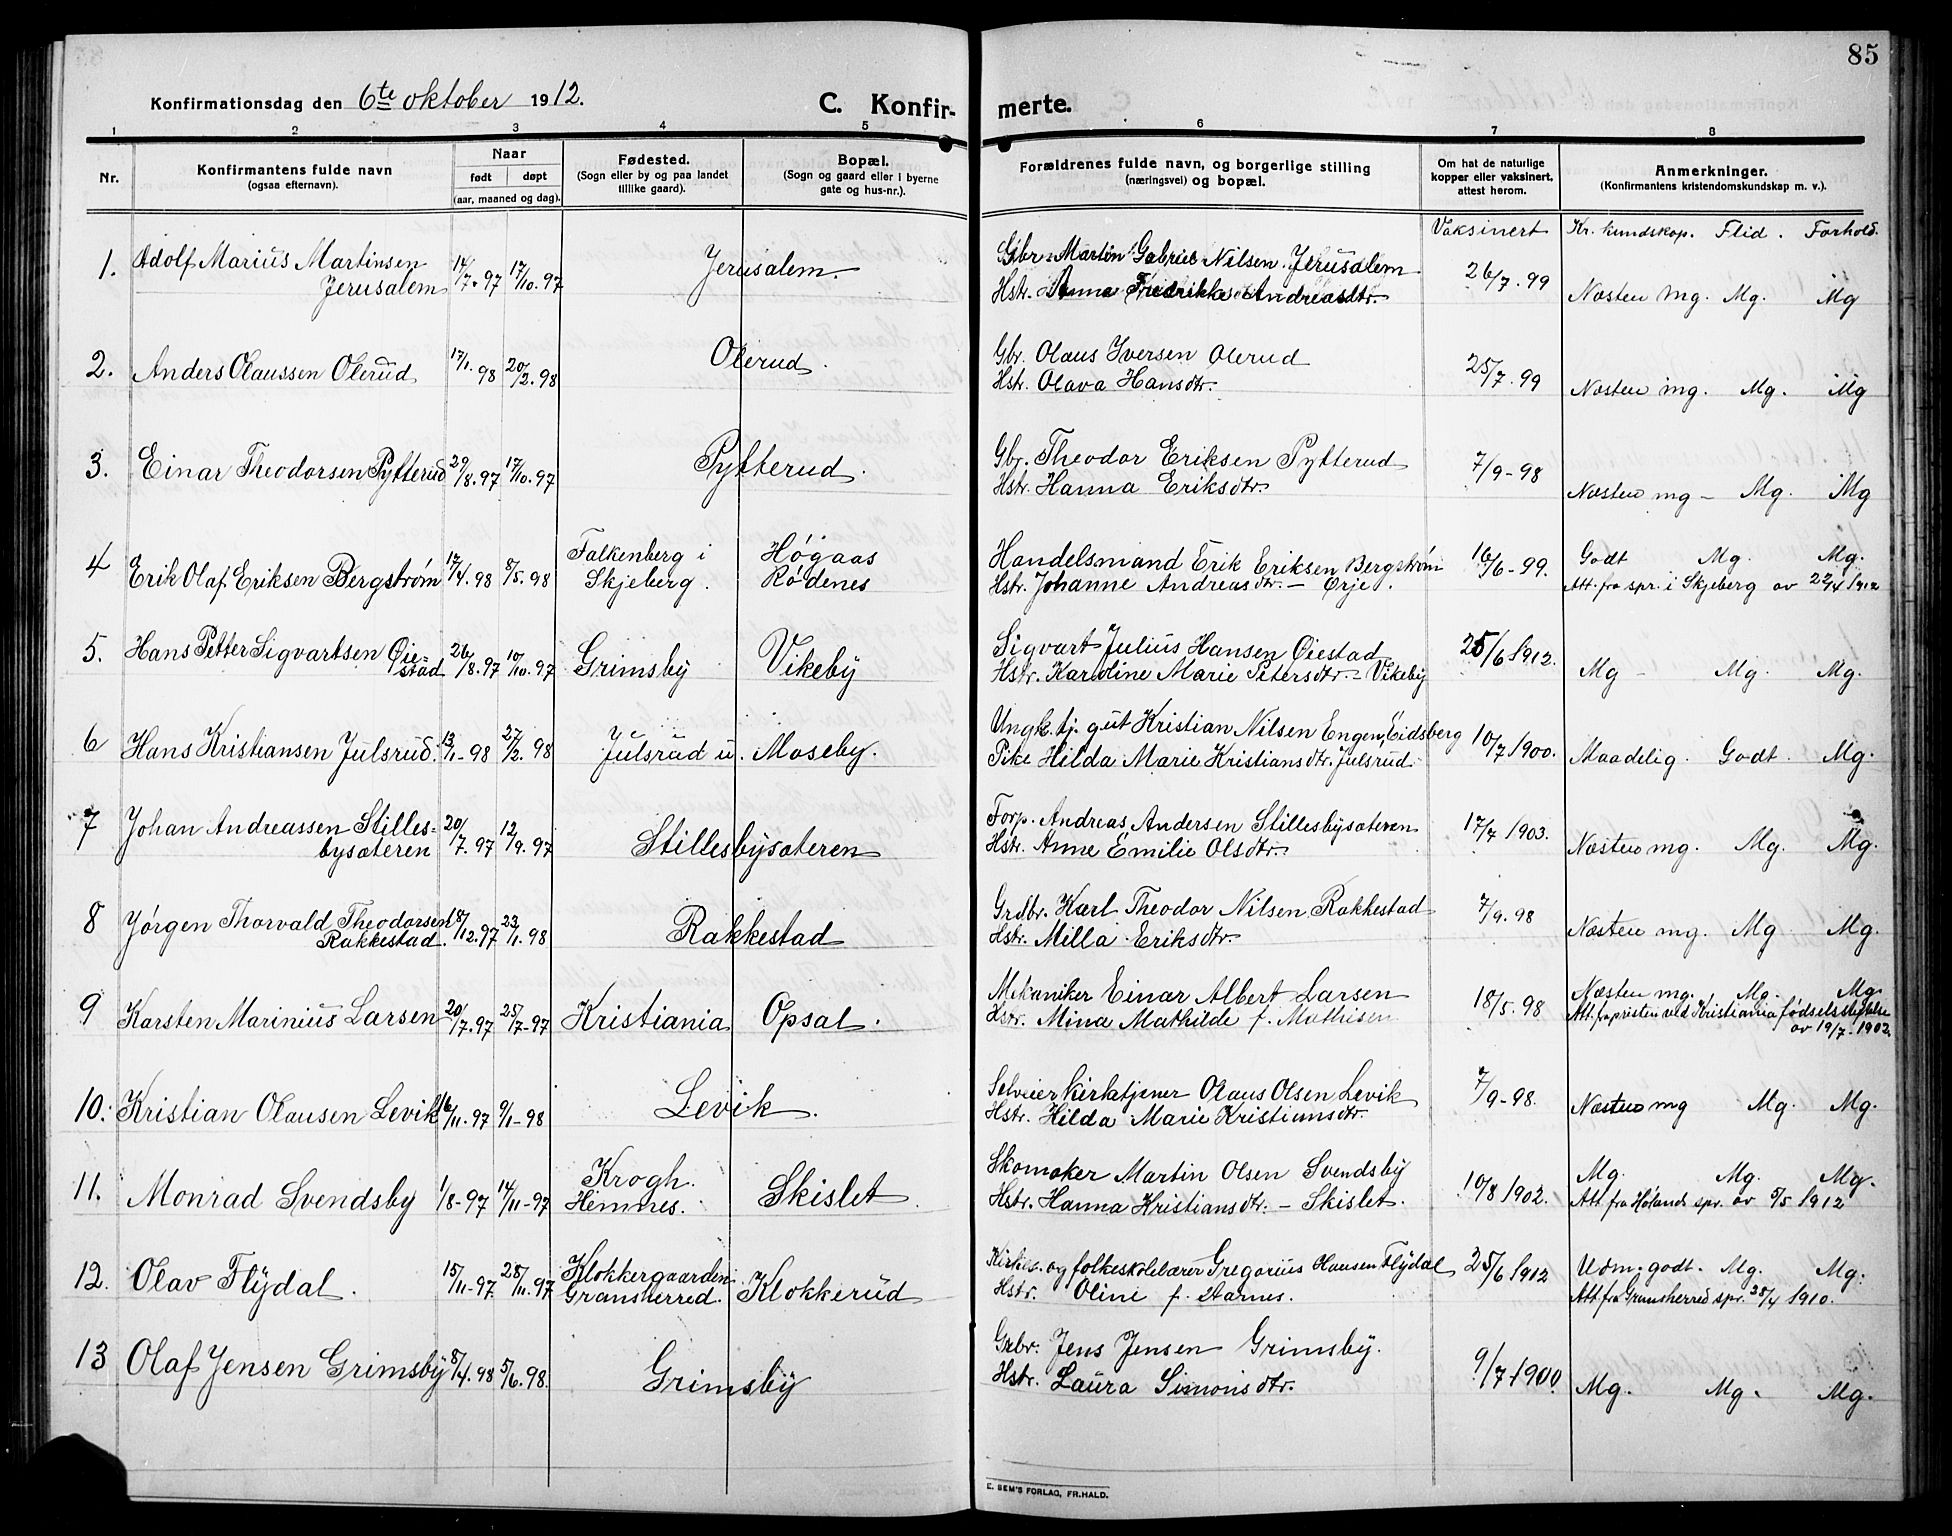 85
Konfirmationsdag den 6te oktober 1912.
C. Konfirmerte.
1 2 3 4 5 6 7 8
Nr.
Konfirmantens fulde navn
(ogsaa efternavn).
Naar
født døpt
(aar, maaned og dag).
Fødested.
(Sogn eller by og paa landet
tillike gaard).
Bopæl.
(Sogn og gaard eller i byerne
gate og hus-nr.).
Forældrenes fulde navn, og borgerlige stilling
(næringsvei) og bopæl.
Om hat de naturlige
kopper eller vaksinert,
attest herom.
Anmerkninger.
(Konfirmantens kristendomskundskap m. v.).
Vaksinert Kr. kundskap. Flid. Forhold.
1. Adolf Marius Martinsen
Jerusalem
14/7.97 17/10.97 Jerusalem.
Gbr. Martin Gabriel Nilsen Jerusalem
Hstr. Anna Fredrikke Andreasdtr.
26/7.99 Næsten mg. Mg. Mg
2. Anders Olaussen Olerud 17/1.98 20/2.98 Olerud.
Gbr. Olaus Iversen Olerud
Hstr. Olava Hansdtr.
25/7.99 Næsten mg. Mg. Mg
3. Einar Theodorsen Pytterud 29/8.97 17/10.97 Pytterud.
Gbr. Theodor Eriksen Pytterud
Hstr. Hanna Eriksdtr.
7/9-98 Næsten mg - Mg. Mg
4 Erik Olaf Eriksen Bergstrøm 17/4.98 8/5.98
Falkenberg i
Skjeberg.
Høgaas
Rødenes
Handelsmand Erik Eriksen Bergstrøm
Hstr. Johanne Andreasdtr. - Ørje.
16/6-99. Godt Mg. Mg.
Att. fra spr. i Skjeberg av 22/4 1912
5. Hans Petter Sigvartsen Øiestad 26/8.97 10/10.97 Grimsby Vikeby
Sigvart Julius Hansen Øiestad
Hstr. Karoline Marie Petersdtr. - Vikeby
25/6 1912. Mg - Mg. Mg.
6 Hans Kristiansen Julsrud. 13/1-98 27/2.98 Julsrud u. Moseby.
Ungk. tj. gut Kristian Nilsen Engen, Eidsberg
Pike Hilda Marie Kristiansdtr. Julsrud.
10/7 1900. Maadelig. Godt. Mg.
7 Johan Andreassen Stilles-
bysæteren
20/7.97 12/9.97 Stillesbysæteren
Forp. Andreas Andersen Stillesbysæteren
Hstr. Anne Emilie Olsdtr.
17/7 1903. Næsten mg. Mg. Mg.
8 Jørgen Thorvald Theodorsen
Rakkestad.
18/12.97 23/1.98 Rakkestad
Grdbr. Karl Theodor Nilsen Rakkestad
Hstr. Milla Eriksdtr.
7/9.98 Næsten mg. Mg Mg.
9 Karsten Marinius Larsen 20/7.97 25/7-97 Kristiania Opsal.
Mekaniker Einar Albert Larsen
Hstr. Mina Mathilde f. Mathisen
18/5.98 Næsten mg. Mg. Mg.
Att. fra presten ved Kristiania fødselsstiftelse
av 19/7-1902.
10. Kristian Olausen Levik 16/11.97 9/1-98 Levik.
Selveier Kirketjener Olaus Olsen Levik
Hstr. Hilda Marie Kristiansdtr.
7/9-98. Næsten mg Mg. Mg.
11. Monrad Svendsby 1/8-97 14/11-97
Krogh.
Hemnes.
Skislet.
Skomaker Martin Olsen Svendsby
Hstr. Hanna Kristiansdtr. - Skislet.
10/8 1902. Mg. Mg. Mg.
Att fra Hølands spr. av 5/5 1912
12. Olav Flydal. 15/11-97. 28/11.97
Klokkergaarden
Gransherred.
Klokkerud
Kirkes. og folkeskolelærer Gregorius Hansen Flydal
Hstr. Oline f. Aarnes.
25/6 1912 Udm. godt. Mg. Mg.
Att. fra Gransherred spr. 25/4 1910.
13 Olaf Jensen Grimsby 8/4.98 5/6.98. Grimsby
Grbr. Jens Jensen Grimsby.
Hstr. Laura Simonsdtr.
9/7 1900 Mg. Mg. Mg.
E. SEM'S FORLAG, FR.HALD.